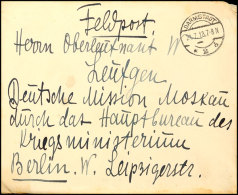 Feldpost
Herrn Oberleutnant W
Leufgen
Deutsche Mission Moskau
durch das Hauptbureau des
Kriegsministerium
Berlin. W. Leipzigerstr.
DARMSTADT